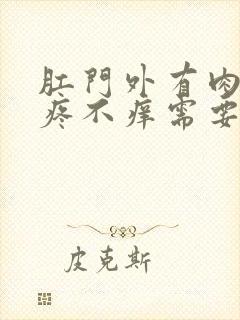 肛門外有肉
疼不痒需要
皮克斯